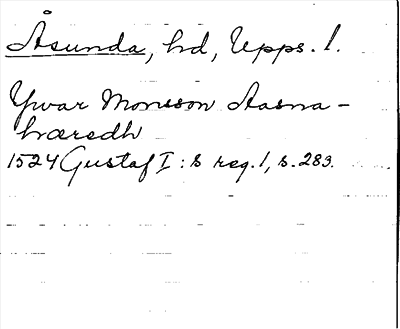 Åsunda, hd, Upps. l.
Ywar Monsson Aasna-
hæredh
1524 Gustaf I:s reg. 1, s. 283.